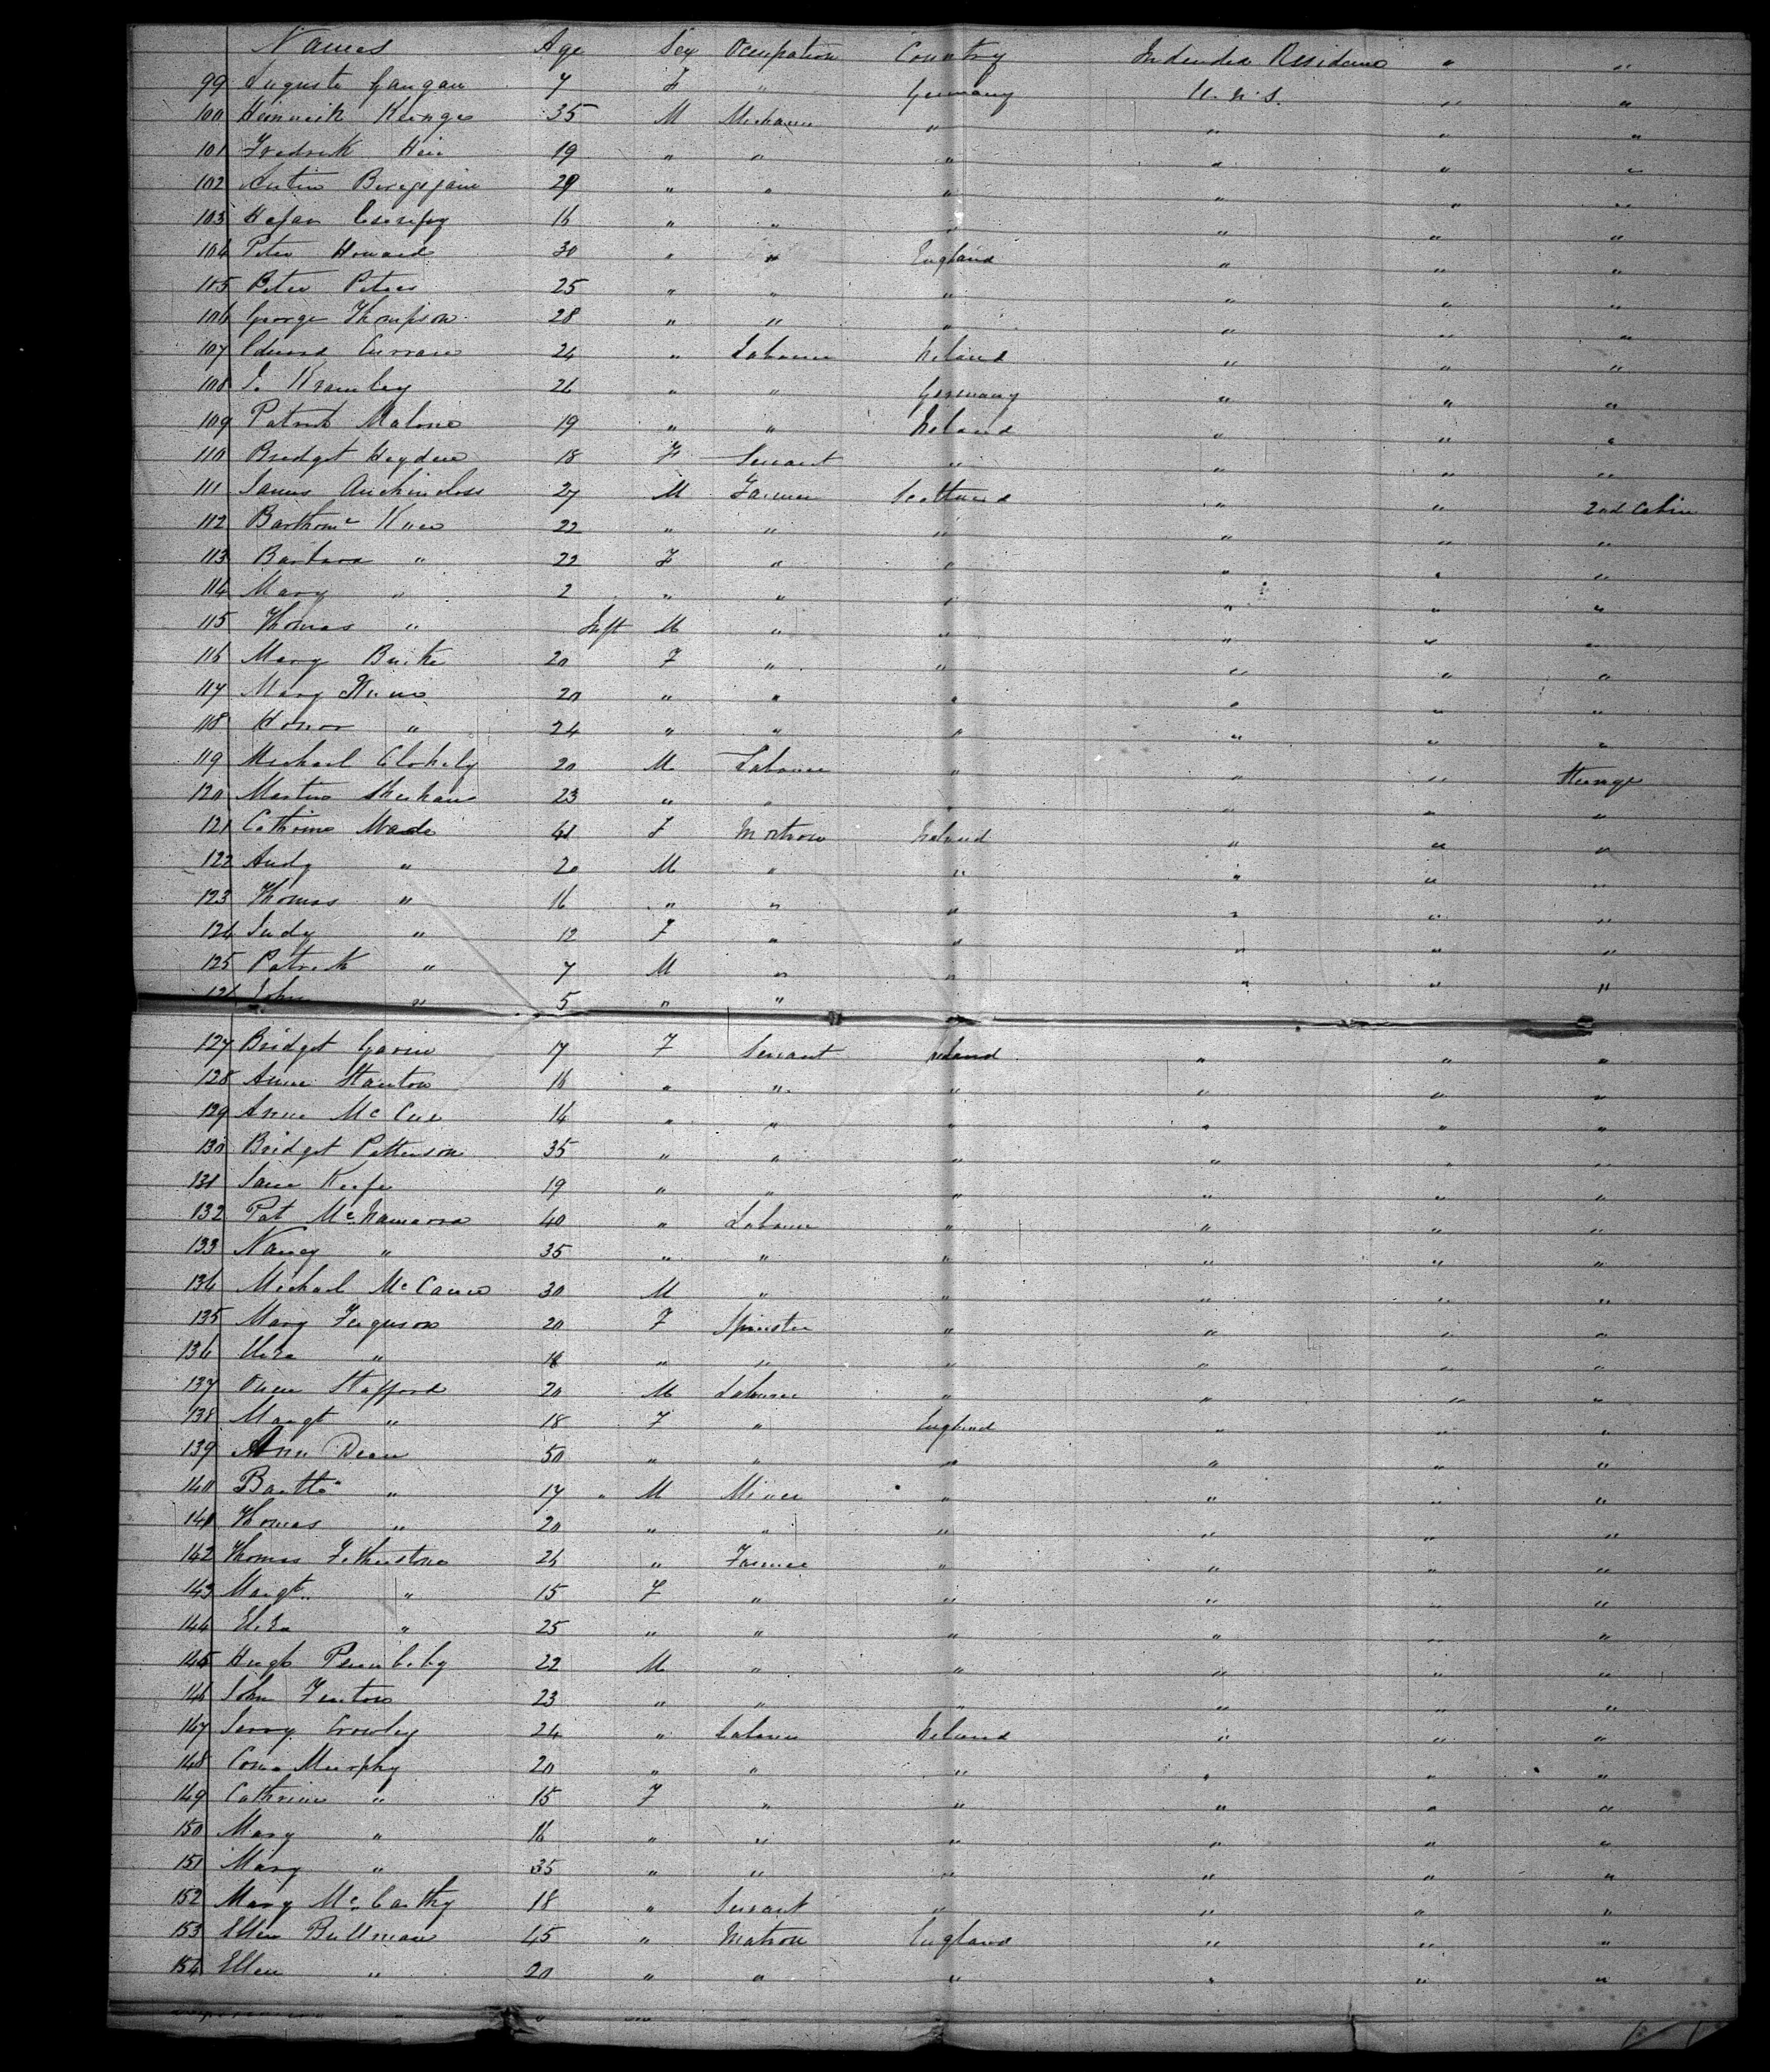 Names Age Sex Occupation Country Intended Residence " "
99 Auguste 7 F " Germany U.S. " "
100 Heinreik 35 M Mechanic " " " "
101 Fredrik 19 " " " " " "
102 29 " " " " " "
103 16 " " " " " "
104 Peter Howard 30 " " England " " "
105 Peter Peters 25 " " " " " "
106 George Thompson 28 " " " " " "
107 Edward Curran 24 " Labourer Ireland " " "
108 26 " " Germany " " "
109 Patrick Malone 19 " " Ireland " " "
110 Bridget Hayden 18 F Servant " " " "
111 James Auchincloss 27 M Farmer Scotland " " 2nd Cabin
112 22 " " " " " "
113 Barbara " 22 F " " " " "
114 Mary " 2 " " " " " "
115 Thomas " Inft M " " " " "
116 Mary Burke 20 F " " " " "
117 Mary 20 " " " " " "
118 Honor " 24 " " " " " "
119 Michael 20 M Labourer " " " Steerage
120 Martin Sheehan 23 " " " " " "
121 Cathrine Made 41 F Matron Ireland " " "
122 Andy " 20 M " " " " "
123 Thomas " 16 " " " " " "
124 Judy " 12 F " " " " "
125 Patrick " 7 M " " " " "
126 John " 5 " "
127 Bridget Gavin 17 F Servant Ireland " " "
128 Anne Stanton 16 " " " " " "
129 Anne McCue 14 " " " " " "
130 Bridget Pattinson 35 " " " " " "
131 Jane Keefe 19 " " " " " "
132 Pat McNamara 40 " Labourer " " " "
133 Nancy " 35 " " " " " "
134 Michael McCann 30 M " " " " "
135 Mary Ferguson 20 F Spinster " " " "
136 Eliza " " " " " " "
137 Owen Stafford 20 M Labourer " " " "
138 Margt " 18 F " England " " "
139 Ann Dean 50 " " " " " "
140 Bartho " 17 " M Miner " " " "
141 Thomas " 20 " " " " " "
142 Thomas Fetherstone 26 " Farmer " " " "
143 Margt " 15 F " " " " "
144 Eliza " 25 " " " " " "
145 Hugh 22 M " " " " "
146 John Fenton 23 " " " " " "
147 Jerry Crowley 24 " Labourer Ireland " " "
148 Murphy 20 " " " " " "
149 Cathrine " 15 F " " " " "
150 Mary " 16 " " " " " "
151 Mary " 35 " " " " " "
152 Mary McCarthy 18 " Servant " " " "
153 Ellen Bullman 45 " Matron England " " "
154 Ellen " 20 " " " " " "